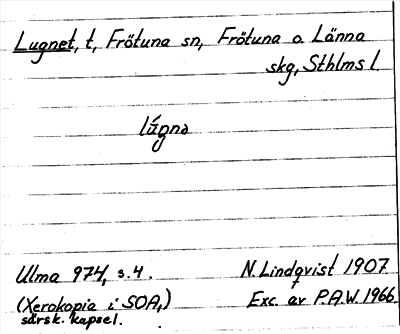 Lugnet, t, Frötuna sn, Frötuna o. Länna
skg, Sthlms l.
lúgnə
Ulma 974, s. 4. N. Lindqvist 1907
(Xerokopia i SOA,) Exc. av P.A.W. 1966
särsk. kapsel.